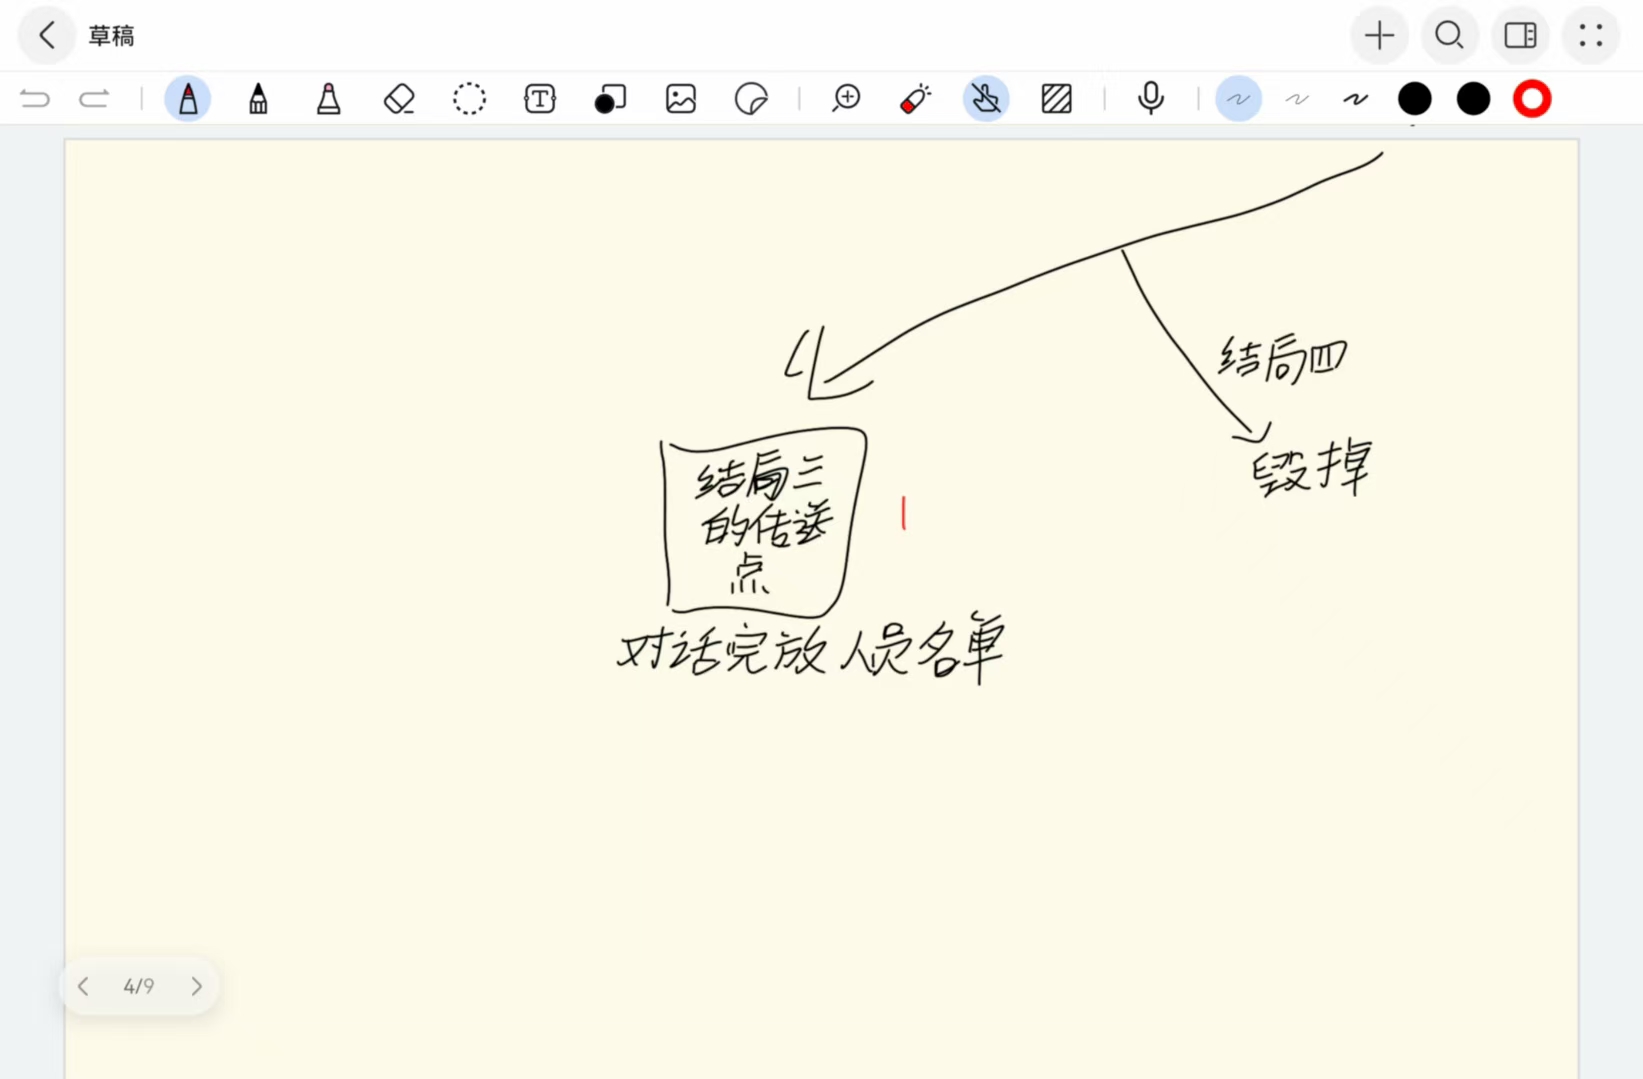 草稿
结局四
毁掉
结局三
的传送
点
对话完放人员名单
4/9